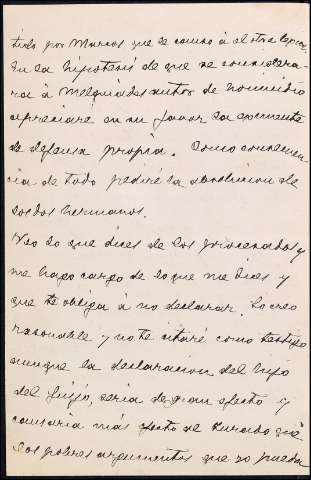 tirado por Marcos que se causó á el otro lesion.
En la hipotesis de que se considera-
ra á Melquiades autor de homicidio
apreciaré en su favor la eximente
de defensa propia. Como consecuen-
cia de todo pediré la absolucion de
los dos hermanos.
Veo lo que dices de los procesados y
me hago cargo de lo que me dices y
que te obliga á no declarar. Lo creo
rasonable y no te citaré como testigo
aunque la declaracion del hijo
del Juzjo, seria de gran efecto y
causaria más efecto al Jurado que
los pobres argumentos que yo pueda